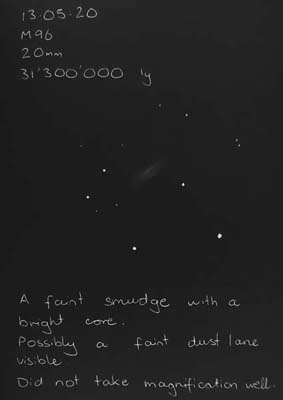 13.05.20
M96
20mm
31'300'000 ly
A faint smudge with a
bright core.
Possibly a faint dust lane
visible
Did not take magnification well.